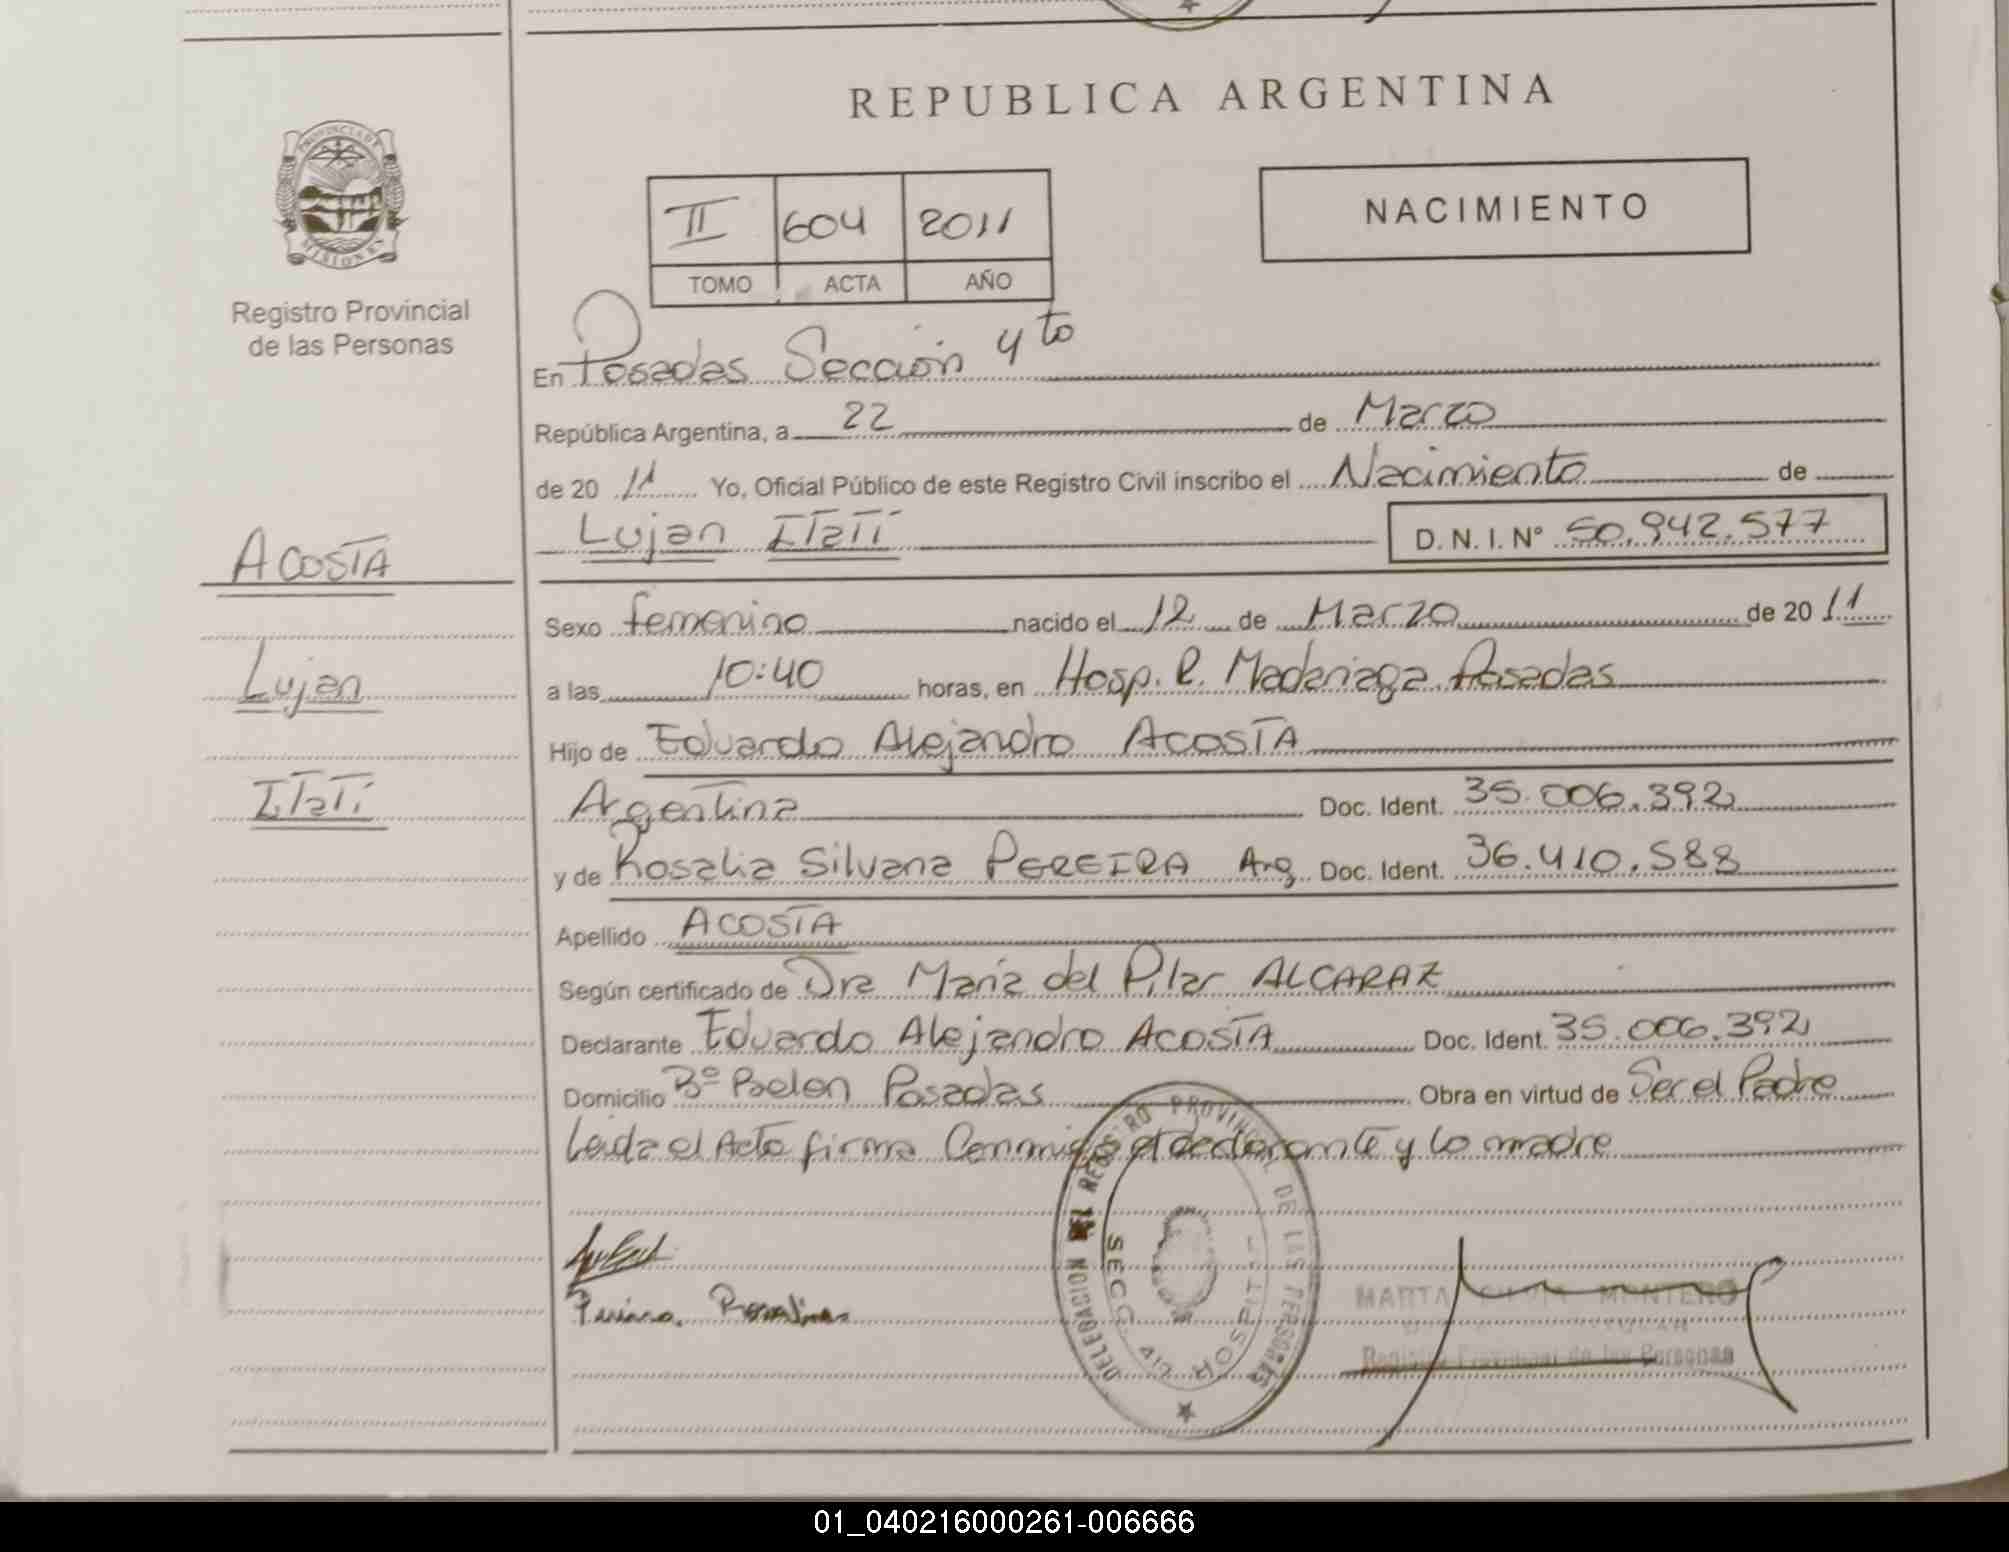 REPUBLICA ARGENTINA
PROVINCIA DE MISIONES
Registro Provincial
de las Personas
II 604 2011
TOMO ACTA AÑO
NACIMIENTO
En Posadas Sección 4to
República Argentina, a 22 de Marzo
de 20 11 Yo, Oficial Público de este Registro Civil inscribo el Nacimiento de
Lujan ITaTí D. N. I. Nº 50.942.577
ACOSTA
Lujan
ITaTí
Sexo femenino nacido el 12 de Marzo de 20 11
a las 10:40 horas, en Hosp. R. Madariaga Posadas
Hijo de Eduardo Alejandro ACOSTA
Argentina Doc. Ident. 35.006.392
y de Rosalia Silvana PEREIRA Arg. Doc. Ident. 36.410.588
Apellido ACOSTA
Según certificado de Dra María del Pilar ALCARAZ
Declarante Eduardo Alejandro ACOSTA Doc. Ident. 35.006.392
Domicilio Bº Belen Posadas Obra en virtud de Ser el Padre
Leida el Acta firma Conmigo el declarante y la madre
REGISTRO PROVINCIAL DE LAS PERSONAS
DELEGACION
SECC. 4ta HOSPITAL
MARTA MONTERO
Registro Provincial de las Personas
01_040216000261-006666